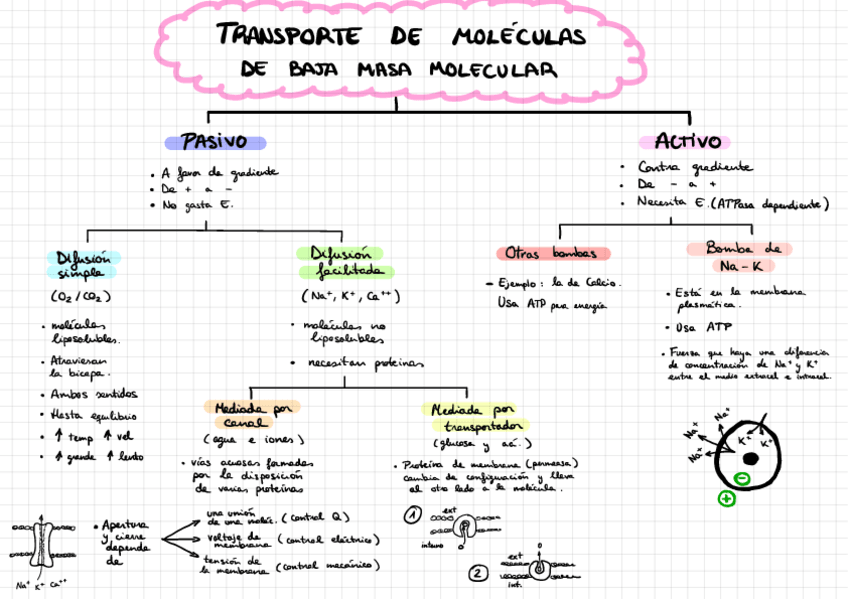 TRANSPORTE DE MOLÉCULAS
DE BAJA MASA MOLECULAR
PASIVO
• A favor de gradiente
• De + a -
• No gasta E.
ACTIVO
• Contra gradiente
• De - a +
• Necesita E. (ATPasa dependiente)
Difusión
simple
(O2/CO2)
• moléculas
liposolubles.
• Atraviesan
la bicapa.
• Ambos sentidos
• Hasta equilibrio
• ↑ temp ↑ vel
• ↑ grande ↑ lento
Difusión
facilitada
(Na+, K+, Ca++)
• moléculas no
liposolubles
• necesitan proteínas
Mediada por
canal
(agua e iones)
• vías acuosas formadas
por la disposición
de varias proteínas
• Apertura
y cierre
depende
de
una unión
de una moléc. (control Q)
voltaje de
membrana (control eléctrico)
tensión de
la membrana (control mecánico)
Na+ K+ Ca++
Mediada por
transportador
(glucosa y aá.)
• Proteína de membrana (permeasa)
cambia de configuración y lleva
al otro lado a la molécula.
1
ext
interno
2
ext
int.
Otras bombas
- Ejemplo: la de Calcio.
Usa ATP para energía
Bomba de
Na-K
• Está en la membrana
plasmática.
• Usa ATP
• Fuerza que haya una diferencia
de concentración de Na+ y K+
entre el medio extracel e intracel.
Na+
Na+
Na+
K+
K+
-
+